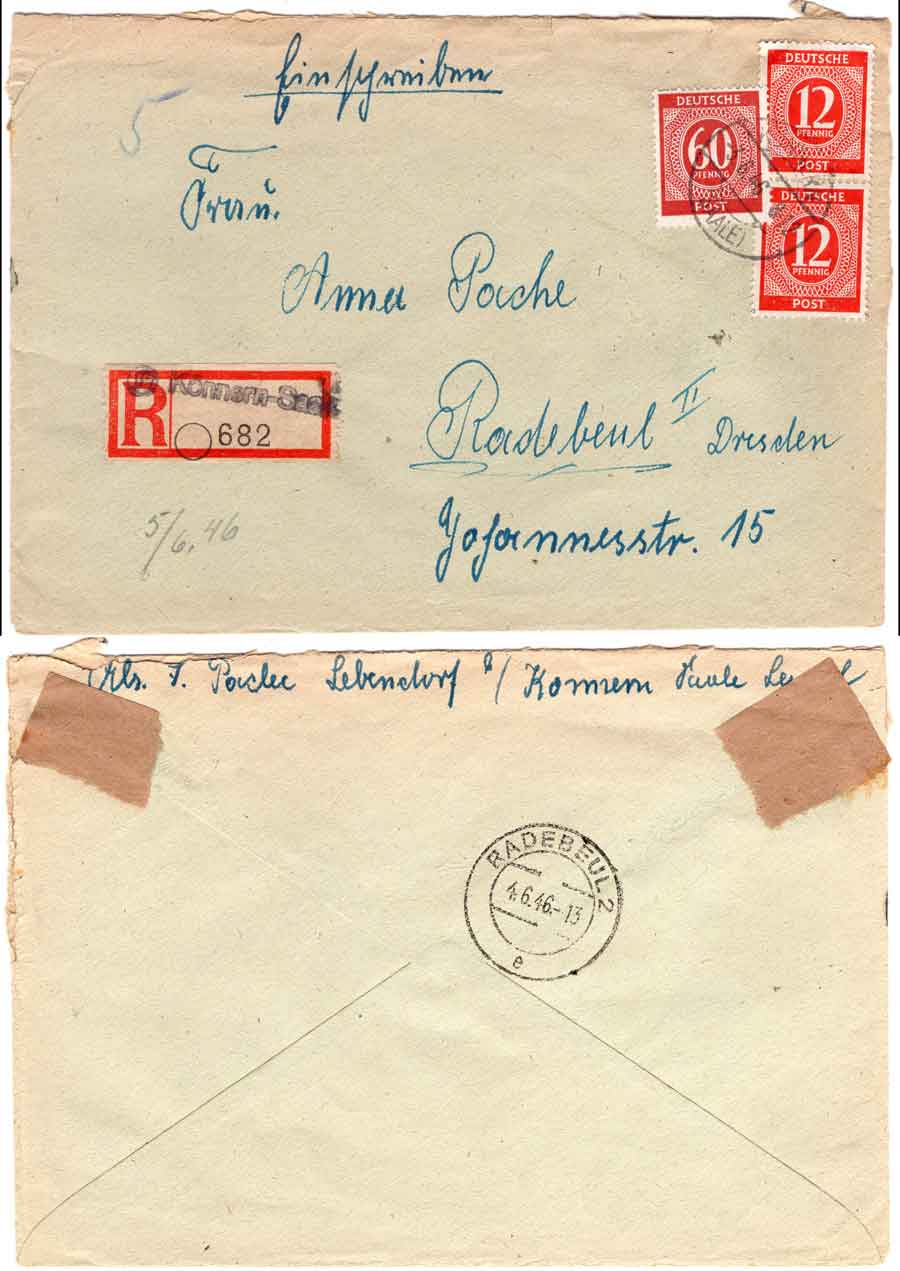 Einschreiben
5
Frau.
Anna Pache
Radebeul II Dresden
Johannesstr. 15
DEUTSCHE
60
PFENNIG
POST
DEUTSCHE
12
PFENNIG
POST
DEUTSCHE
12
PFENNIG
POST
(SAALE)
R
Könnern-Saale
682
5/6.46
Abs. Lebendorf
RADEBEUL 2
4.6.46.-13
e